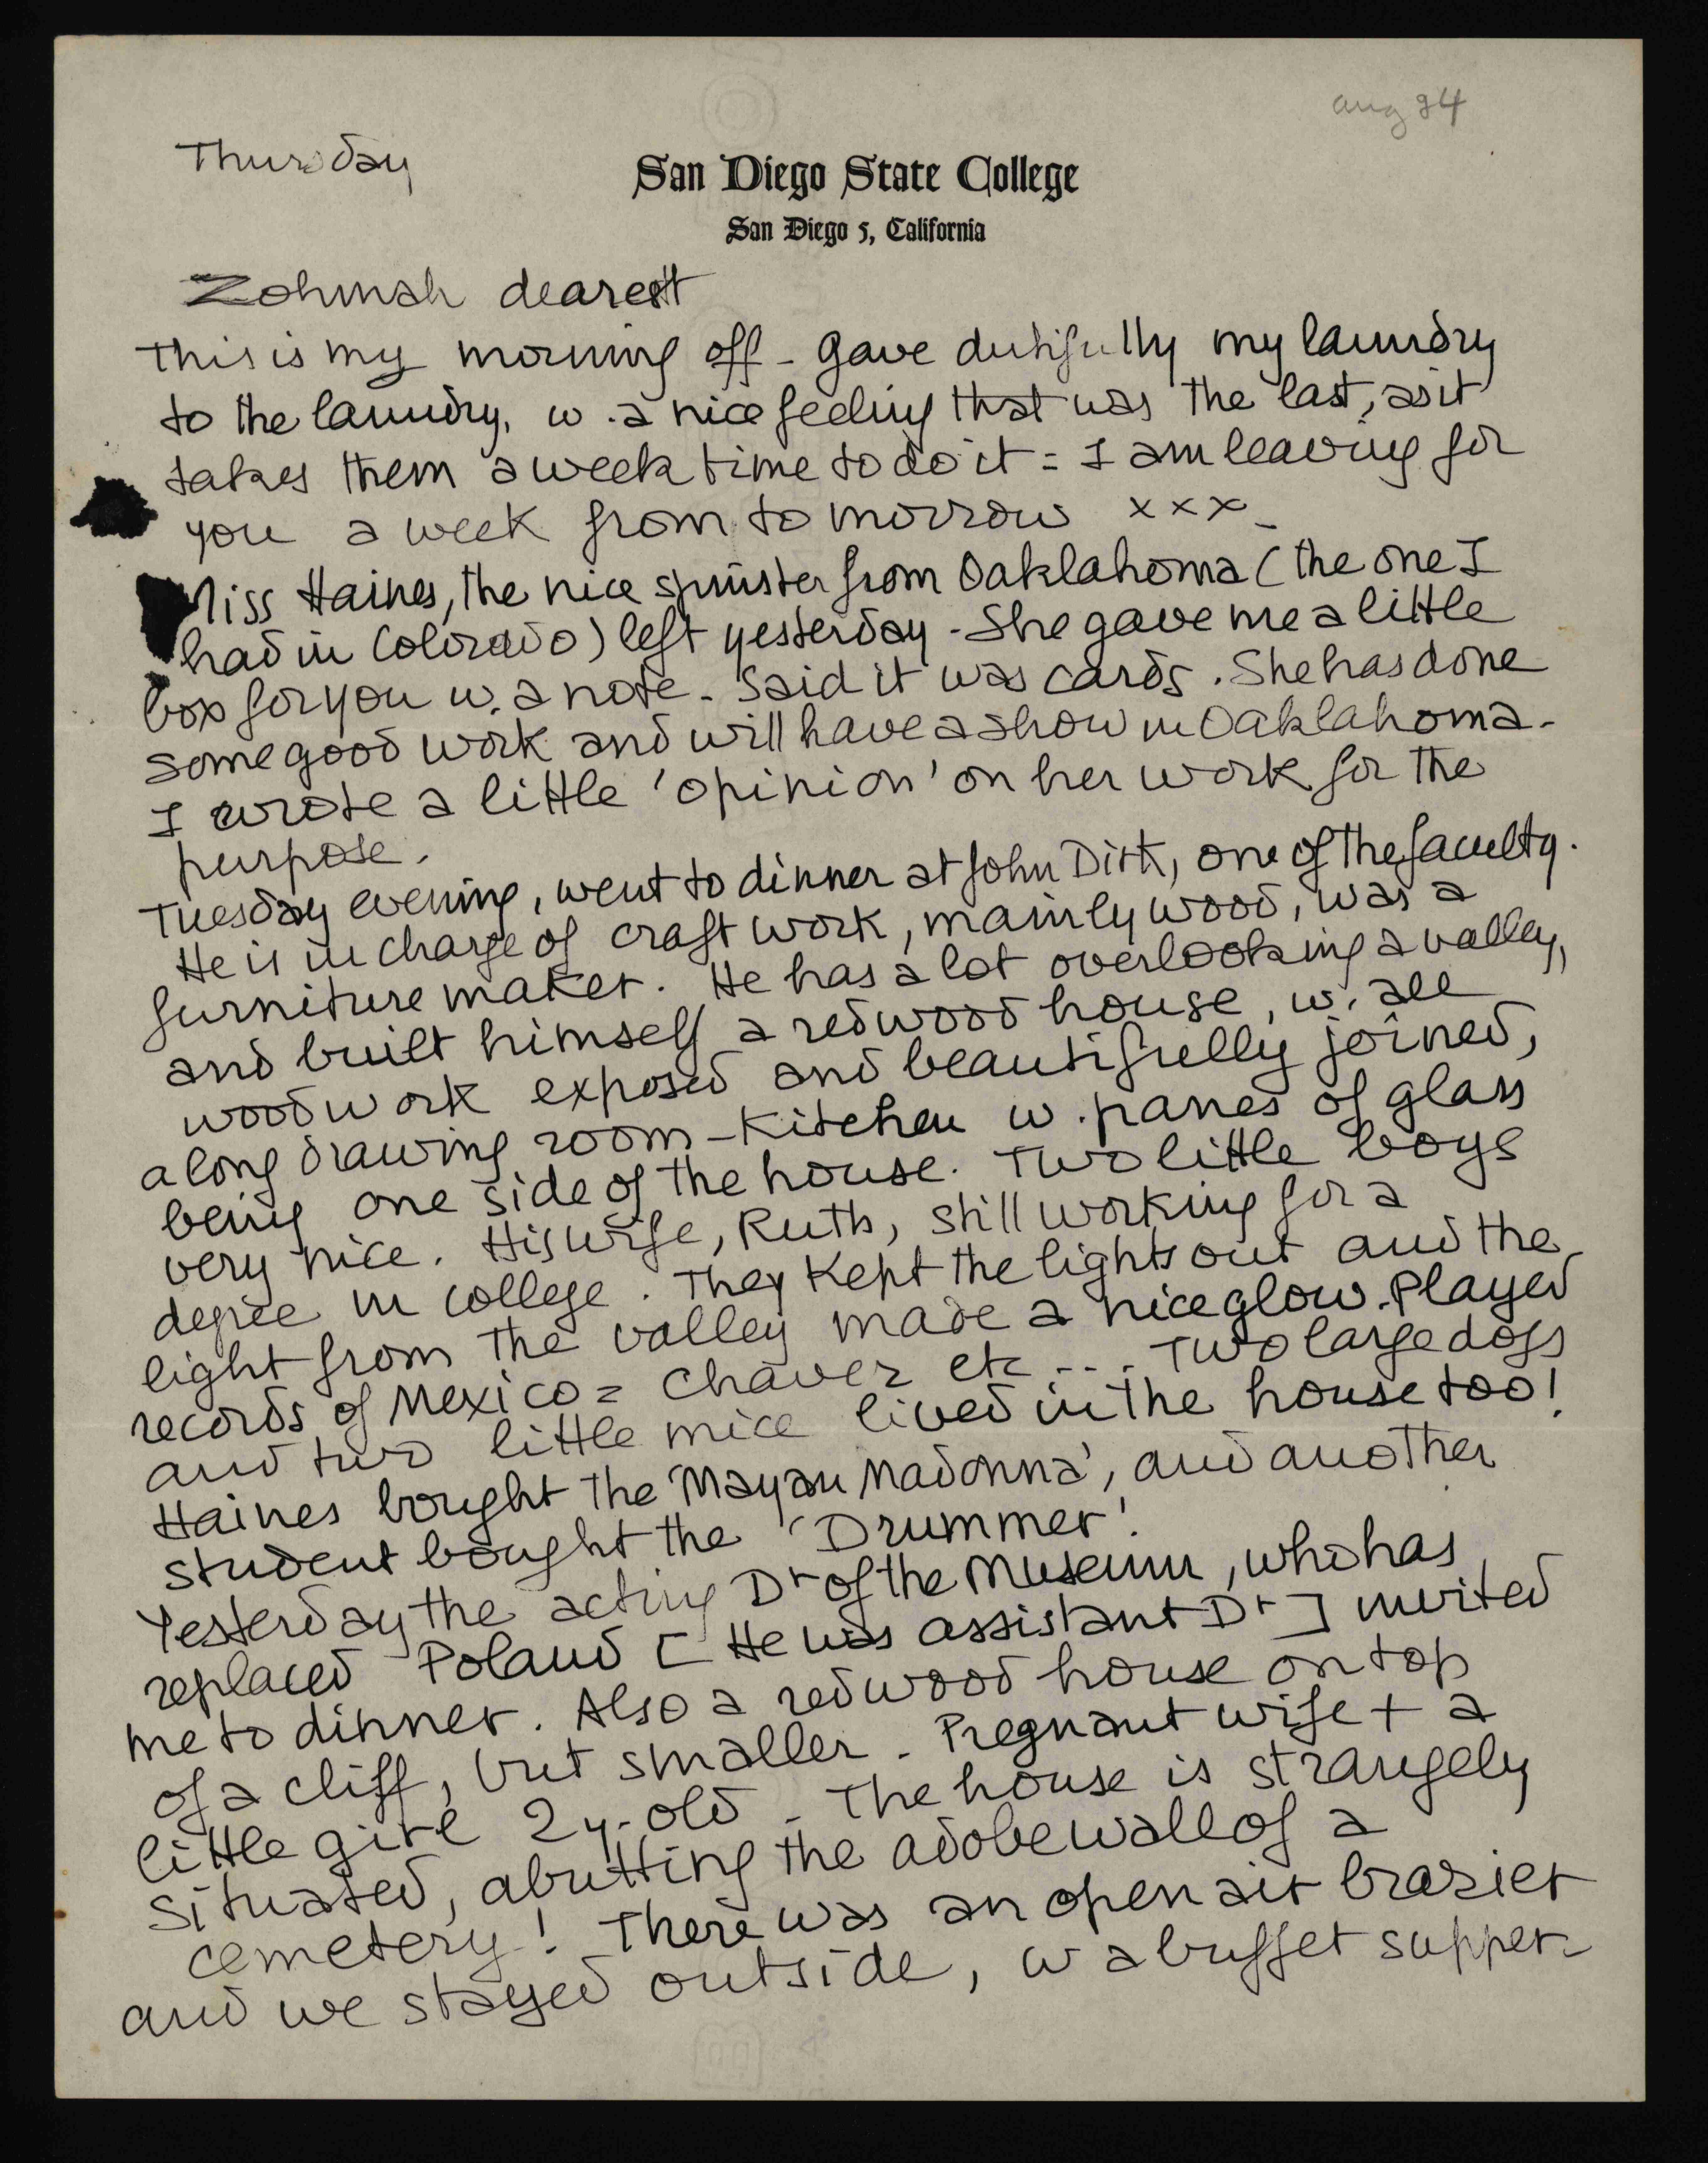 aug 24
Thursday
San Diego State College
San Diego 5, California
Zohmah dearest
This is my morning off - Gave dutifully my laundry
to the laundry, w. a nice feeling that was the last, as it
takes them a week time to do it = I am leaving for
you a week from tomorrow xxx -
Miss Haines, the nice spinster from Oaklahoma (the one I
had in Colorado) left yesterday - She gave me a little
box for you w. a note - Said it was cards. She has done
some good work and will have a show in Oaklahoma -
I wrote a little 'opinion' on her work for the
purpose.
Tuesday evening, went to dinner at John Dirk, one of the faculty.
He is in charge of craft work, mainly wood, was a
furniture maker. He has a lot overlooking a valley,
and built himself a redwood house, w. all
woodwork exposed and beautifully joined,
a long drawing room - Kitchen w. panes of glass
being one side of the house. Two little boys
very nice. His wife, Ruth, still working for a
degree in college. They kept the lights out and the
light from the valley made a nice glow. Played
records of Mexico = Chavez etc... Two large dogs
and two little mice lived in the house too!
Haines bought the 'Mayan Madonna', and another
student bought the 'Drummer'.
Yesterday the acting Dr of the Museum, who has
replaced Poland [He was assistant Dr] invited
me to dinner. Also a redwood house on top
of a cliff, but smaller - Pregnant wife + a
little girl 2 y. old - The house is strangely
situated, abutting the adobe wall of a
cemetery! There was an open air brazier
and we stayed outside, w a buffet supper -